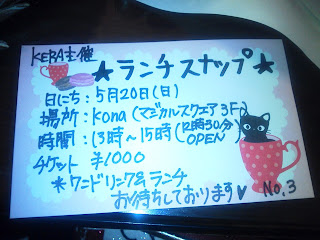 KERA主催
★ランチスナップ★
日にち：5月20日(日)
場所：Kona(マジカルスクエア3F)
時間：13時〜15時(12時30分OPEN)
チケット ¥1000
＊ワンドリンク&ランチ
お待ちしております♥
No.3